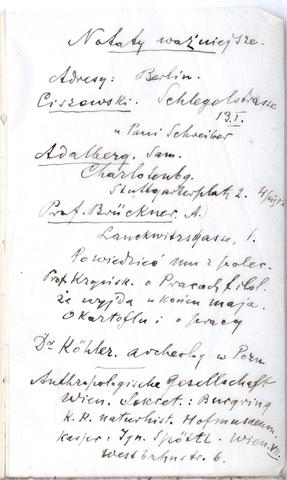 Notaty ważniejsze.
Adresy: Berlin.
Ciszewski. Schlegelstrasse
13. I.
u Pani Schreiber
Adalberg. Sam.
Charlotenbg.
Stuttgarterplatz 2.
Prof. Brückner. A.
Lankwitzgasse, 1.
Powiedzieć mu z polec.
Prof. Kryńsk. o Pracach filol.
że wyjdą w końcu maja.
O Kartoflu i o pracy
Dr Köhler. archeolog w Pozn
Anthropologische Gesellschaft
Wien. Sekret: Burgring
k. k. naturhist. Hofmuseum
kasjer: Ign. Spöttl. Wien. VII.
Westbahnstr. 6.